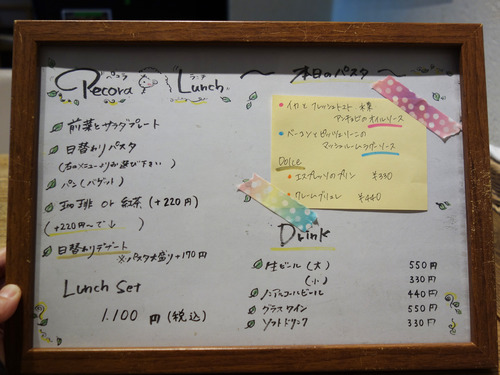 ペコラ ランチ
Pecora Lunch
前菜とサラダプレート
日替わりパスタ
(右のメニューよりお選び下さい)
パン(バゲット)
珈琲 or 紅茶 (+220円)
(+220円~で↓)
日替わりデザート
※パスタ大盛り+170円
Lunch Set
1.100 円(税込)
~ 本日のパスタ ~
イカとフレッシュトマト 水菜
アンチョビのオイルソース
ベーコンと
マッシュルームの ソース
Dolce
エスプレッソのプリン ¥330
クレームブリュレ ¥440
Drink
生ビール (大) 550円
(小) 330円
ノンアルコールビール 440円
グラスワイン 550円
ソフトドリンク 330円